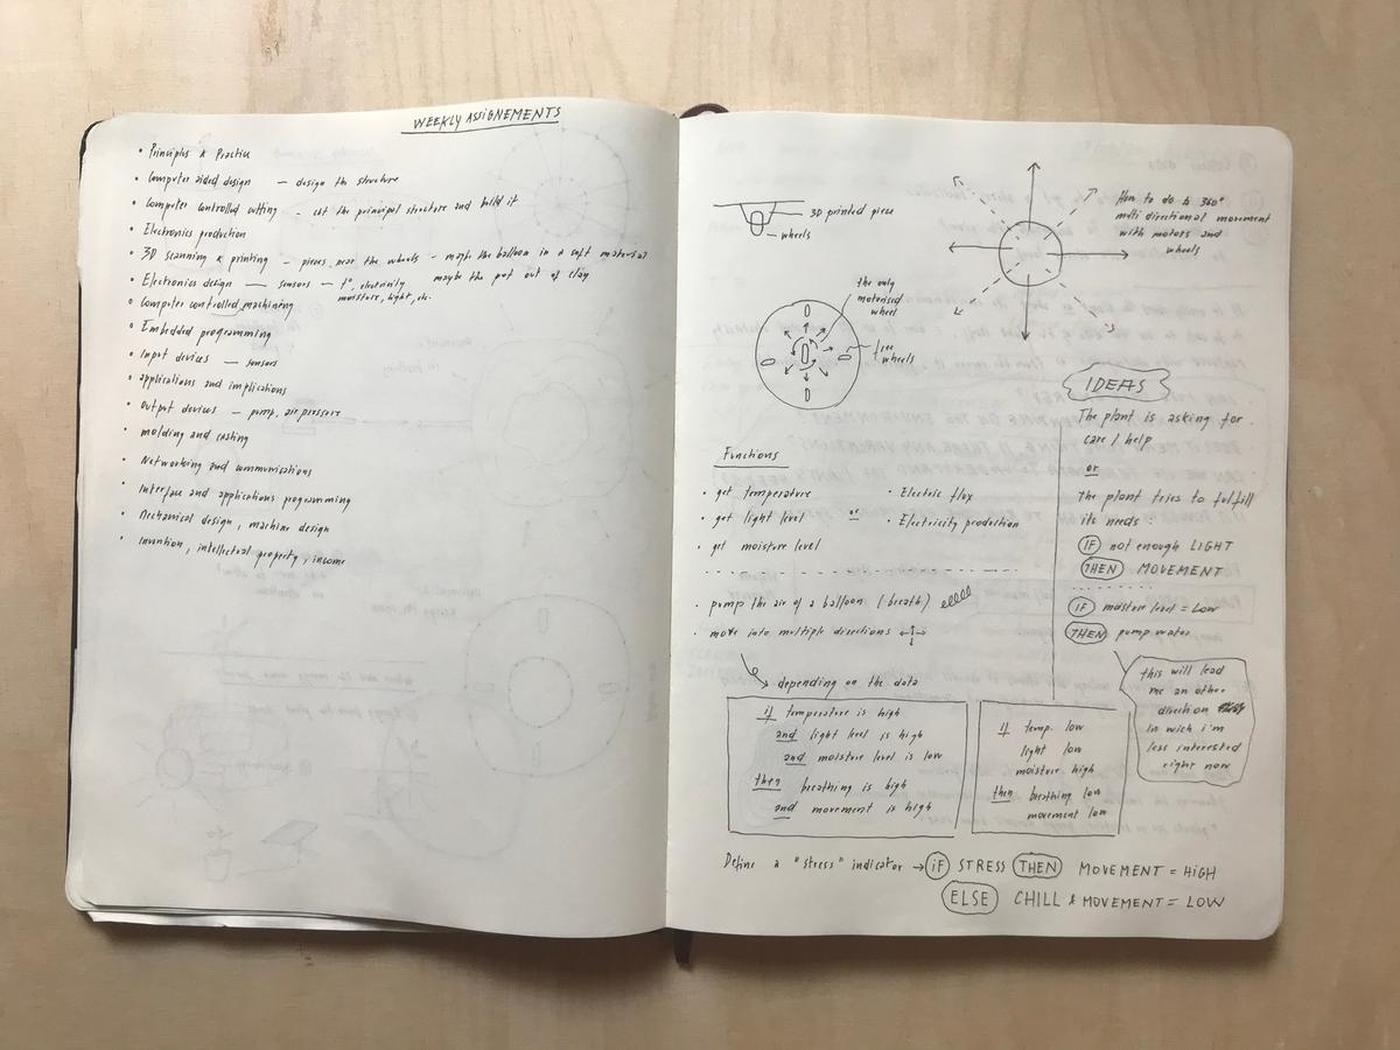 WEEKLY ASSIGNEMENTS
• Principles & Practice
• Computer aided design — design the structure
• Computer controlled cutting — cut the principal structure and build it
• Electronics production
• 3D scanning & printing — pieces near the wheels — maybe the balloon in a soft material
maybe the pot out of clay
• Electronics design — sensors — t°, electricity
moisture, light, etc.
• Computer controlled machining
• Embedded programming
• Input devices — sensors
• applications and implications
• Output devices — pump, air pressure
• molding and casting
• Networking and communications
• Interface and applications programming
• Mechanical design, machine design
• Invention, intellectual property, income
3D printed piece
wheels
How to do a 360°
multi directional movement
with motors and
wheels
the only
motorised
wheel
free
wheels
IDEAS
The plant is asking for
care / help
or
The plant tries to fulfill
its needs :
IF not enough LIGHT
THEN MOVEMENT
IF moisture level = Low
THEN pump water
this will lead
me an other
direction
in wich i'm
less interested
right now
Functions
• get temperature
• get light level
• get moisture level
or
• Electric flux
• Electricity production
• pump the air of a balloon (breath)
• move into multiple directions
depending on the data
if temperature is high
and light level is high
and moisture level is low
then breathing is high
and movement is high
if temp. low
light low
moisture high
then breathing low
movement low
Define a "stress" indicator → IF STRESS THEN MOVEMENT = HIGH
ELSE CHILL & MOVEMENT = LOW